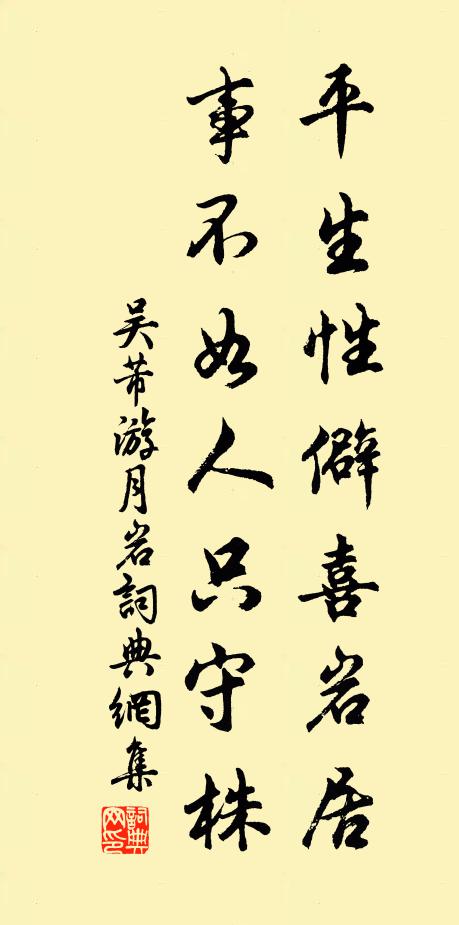 平生性僻喜岩居
事不如人只守株
吴芾游月岩詞典網集
詞典网印